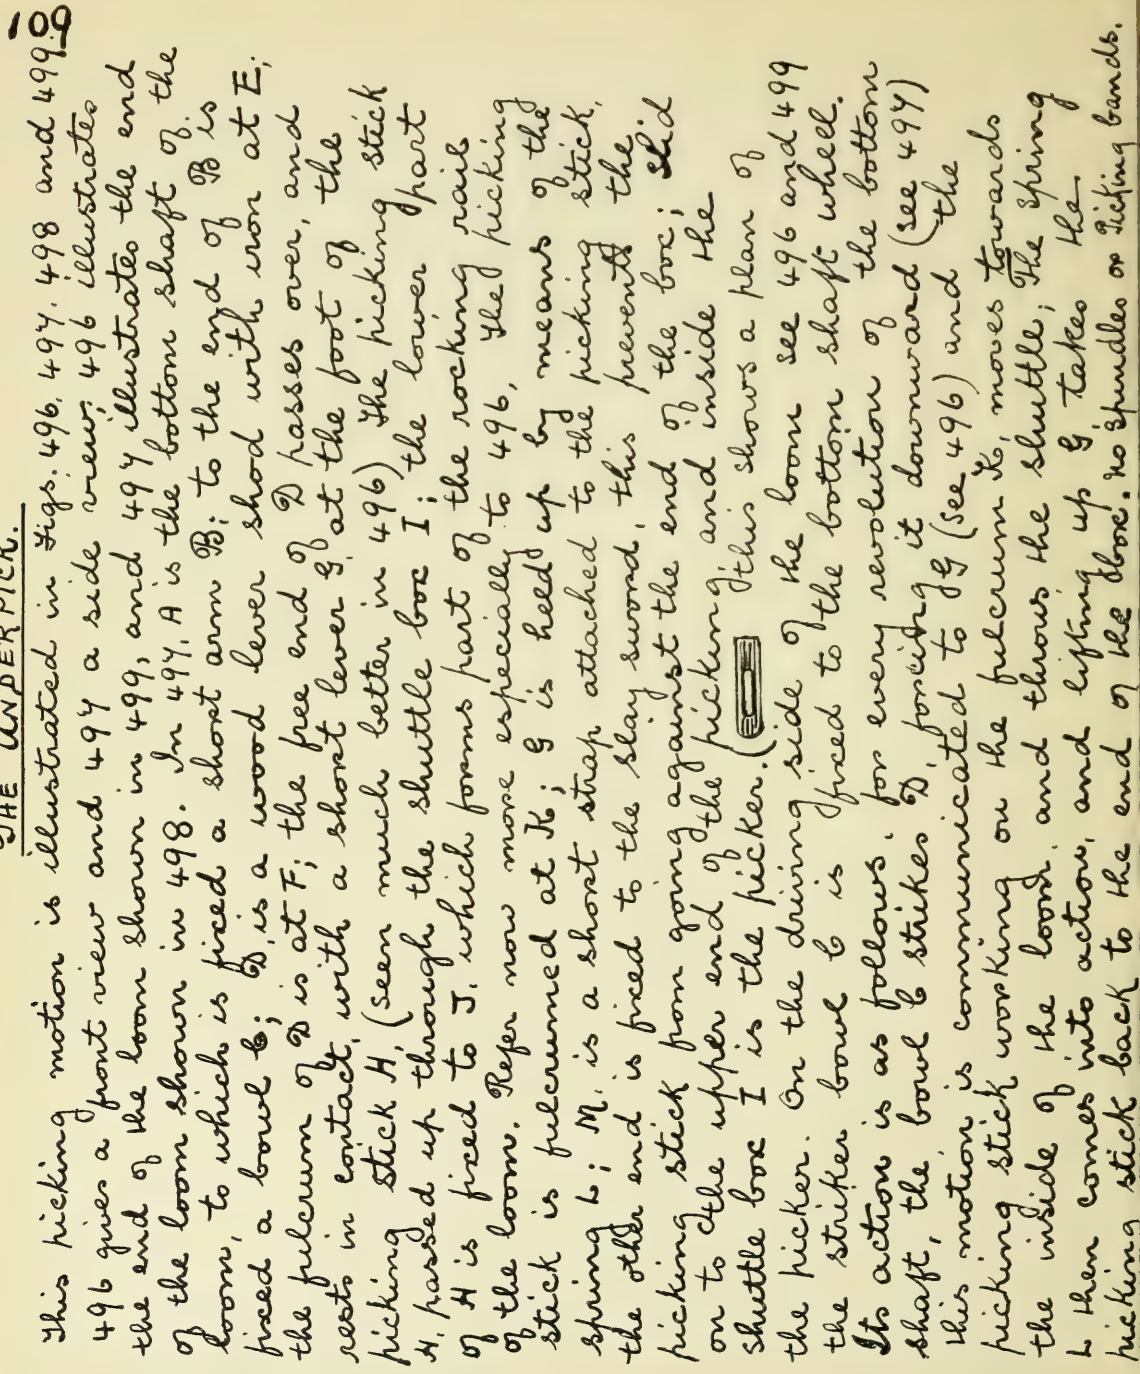 109
THE UNDERPICK.
This picking motion is illustrated in Figs. 496. 497. 498 and 499.
496 gives a front view and 497 a side view; 496 illustrates
the end of the loom shown in 499, and 497 illustrates the end
of the loom shown in 498. In 497, A is the bottom shaft of the
loom, to which is fixed a short arm B; to the end of B is
fixed a bowl C; D, is a wood lever shod with iron at E;
the fulcrum of D is at F; the free end of D passes over, and
rests in contact, with a short lever G, at the foot of the
picking stick H, (seen much better in 496) The picking stick
H, passed up through the shuttle box I; the lower part
of H is fixed to J. which forms part of the rocking rail
of the loom. Refer now more especially to 496, The picking
stick is fulcrumed at K; G is held up by means of the
spring L; M, is a short strap attached to the picking stick,
the other end is fixed to the slay sword, this prevents the
picking stick from going against the end of the box; slid
on to the upper end of the picking and inside the
shuttle box I is the picker. (this shows a plan of
the picker. On the driving side of the loom see 496 and 499
the striker bowl C is fixed to the bottom shaft wheel.
Its action is as follows. for every revolution of the bottom
shaft, the bowl C strikes D, forcing it downward (see 497)
this motion is communicated to G (see 496) and the
picking stick working on the fulcrum K, moves towards
the inside of the loom, and throws the shuttle; The spring
L then comes into action, and lifting up G takes the
picking stick back to the end of the box. No Spindles or Picking bands.